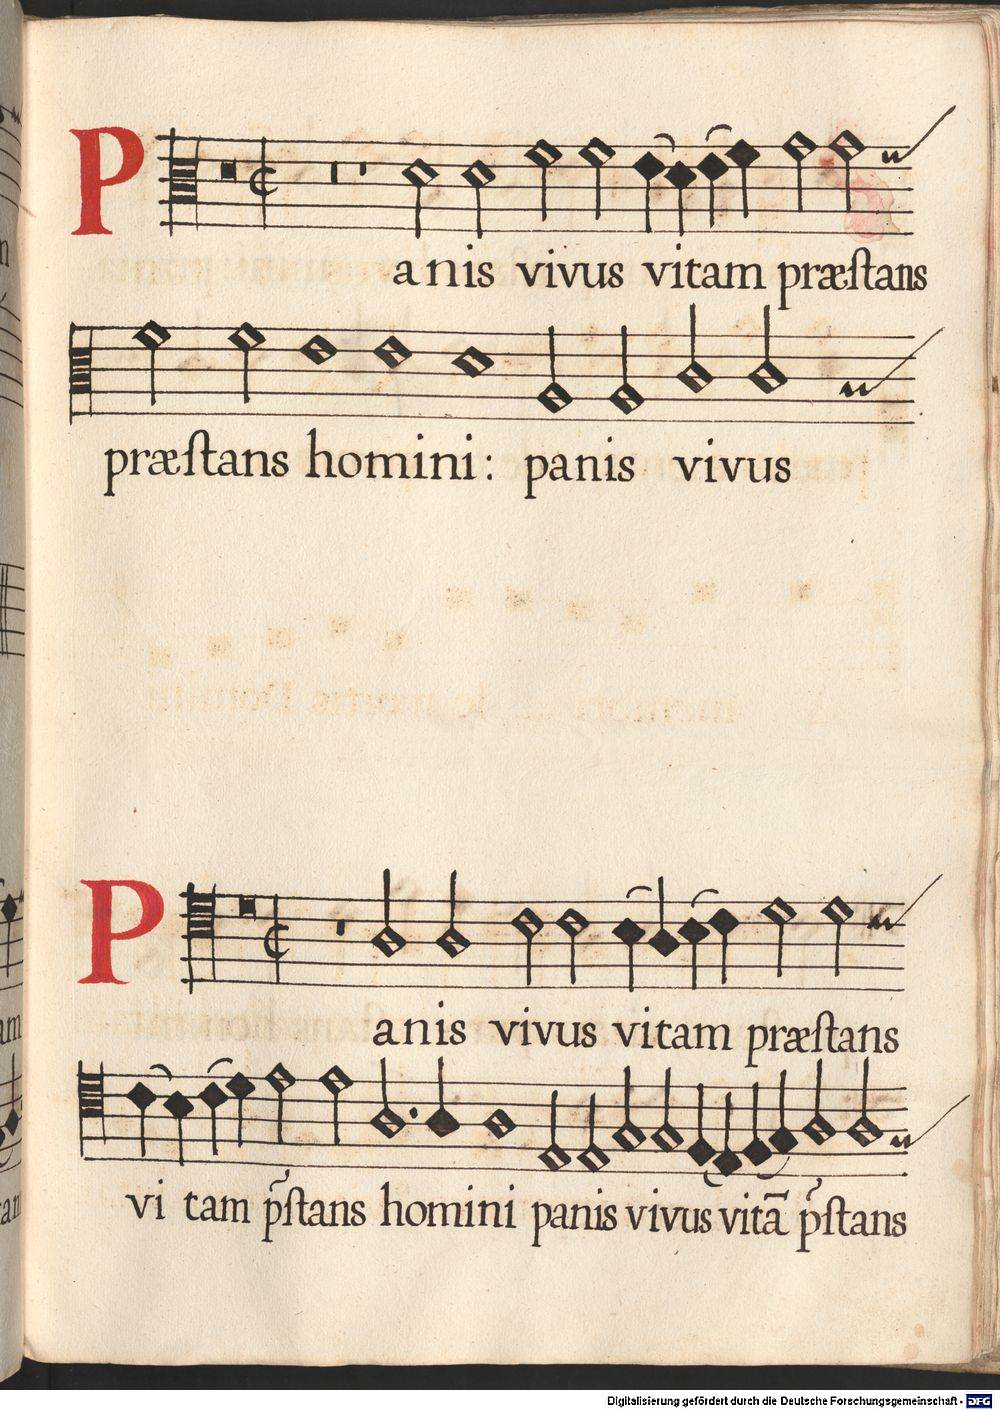 Panis vivus vitam præſtans
præſtans homini: panis vivus
Panis vivus vitam præſtans
vi tam p̃ſtans homini panis vivus vitā p̃ſtans
Digitalisierung gefördert durch die Deutsche Forschungsgemeinschaft - DFG